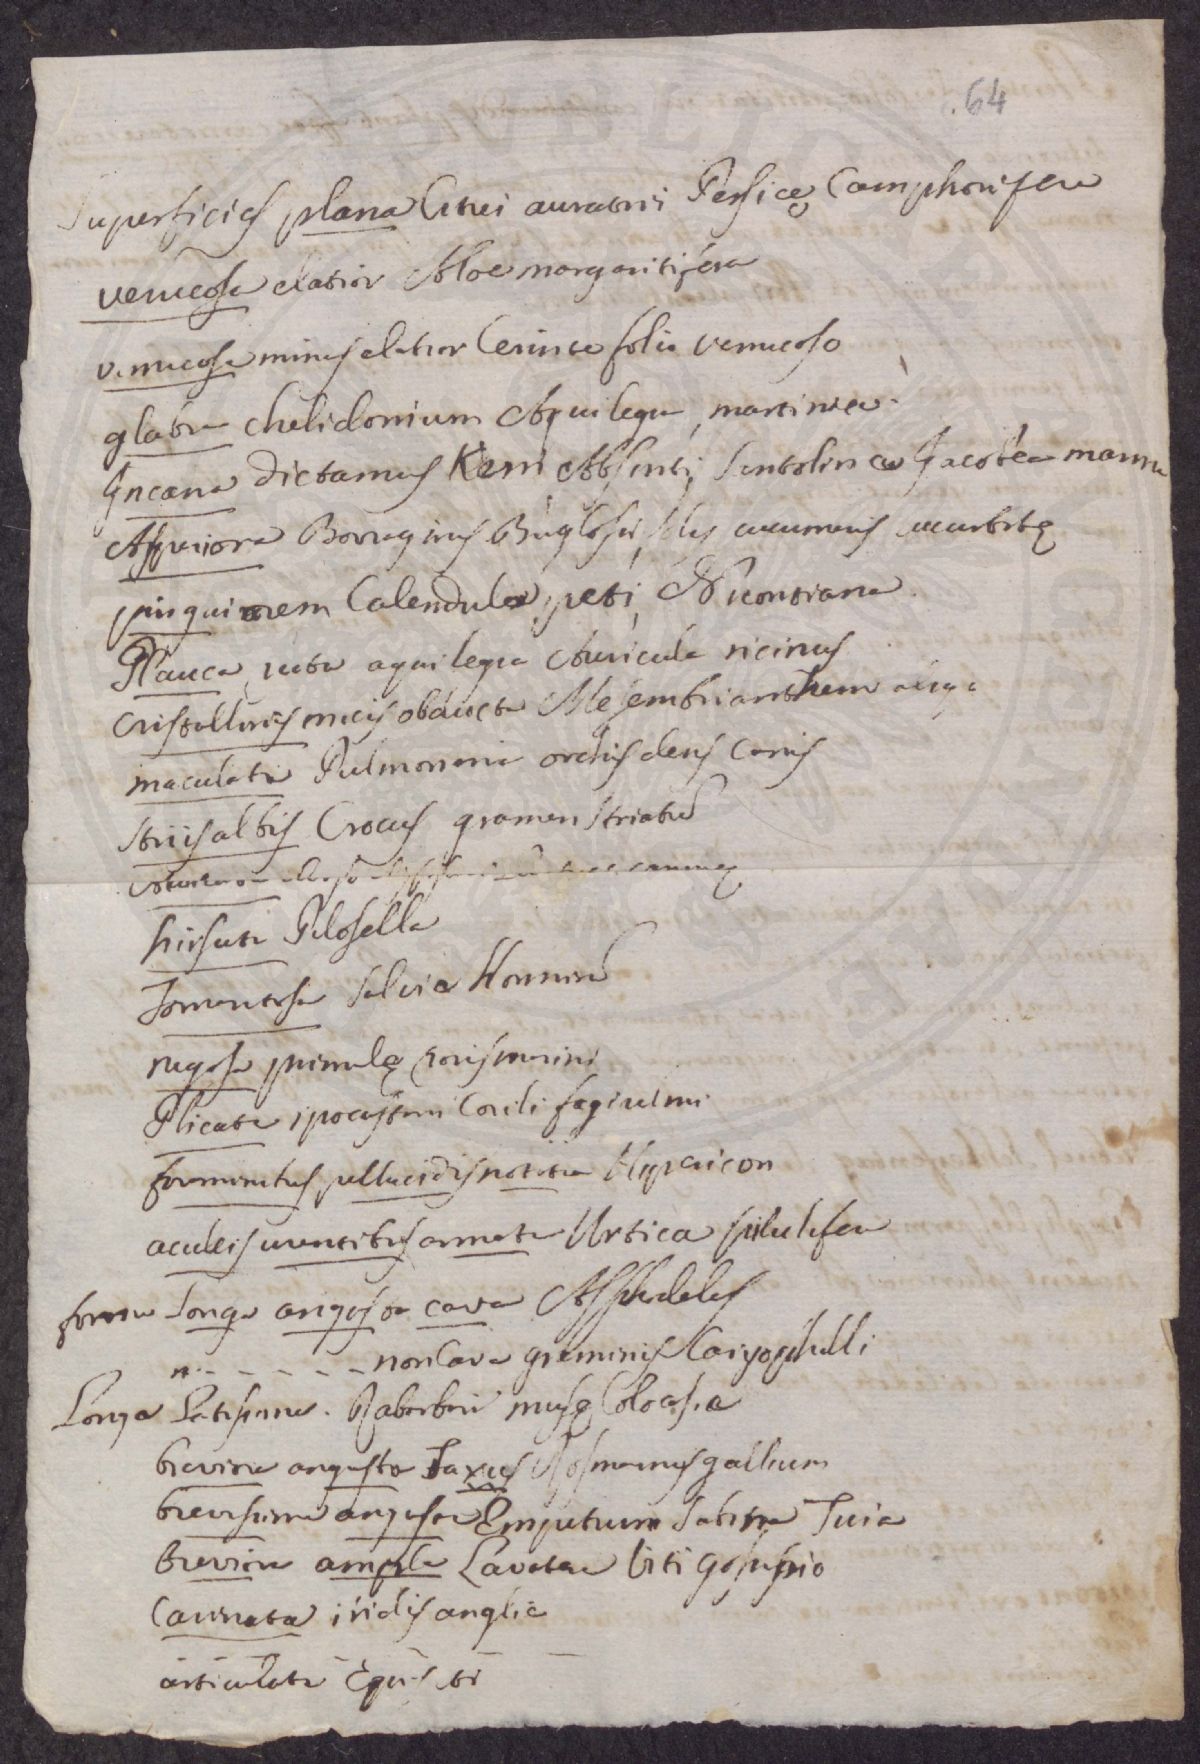 .64
Superficies plana Citri aurantii Persicę Camphorifera
verrucosa elatior Aloe margaritifera
verrucosa minus elatior Cerinte folio verrucoso
glabra chelidonium Aquilegia, martinica
Incana dictamus Keiri Absinti, santolinæ Jacobea marina
Asperiora Borraginis Buglossi, cucumeris cucurbitę
pinguiorem Calendulæ, peti, Nicontiana
Glauca, ruta aquilegia Auricula ricinus
Cristallinis micis obducta Mesembrianthem
maculata Pulmonaria orchis dens canis
striis albis Crocus gramen striatū
hirsuta Pilosella
Tomentosa salvia Horminū
rugosa primulę rorismarini
Plicata ipocastani Corili fagi ulmi
foraminibus pellucidis notata Hypericon
aculeis urentibus armata Urtica pilulifera
forma Longa angusta cava Asphodelus
n - - - - - - non Cava graminis Cariophilli
Longa Latissima. Rabarbari musę Colocasia
breviora angusta Taxus Rosmarinus gallium
brevissima angusta Empetrum Sabina Tuia
breviora ampla Lavatera Viti gossipio
Carinata iridis anglie
articulata Equiseti